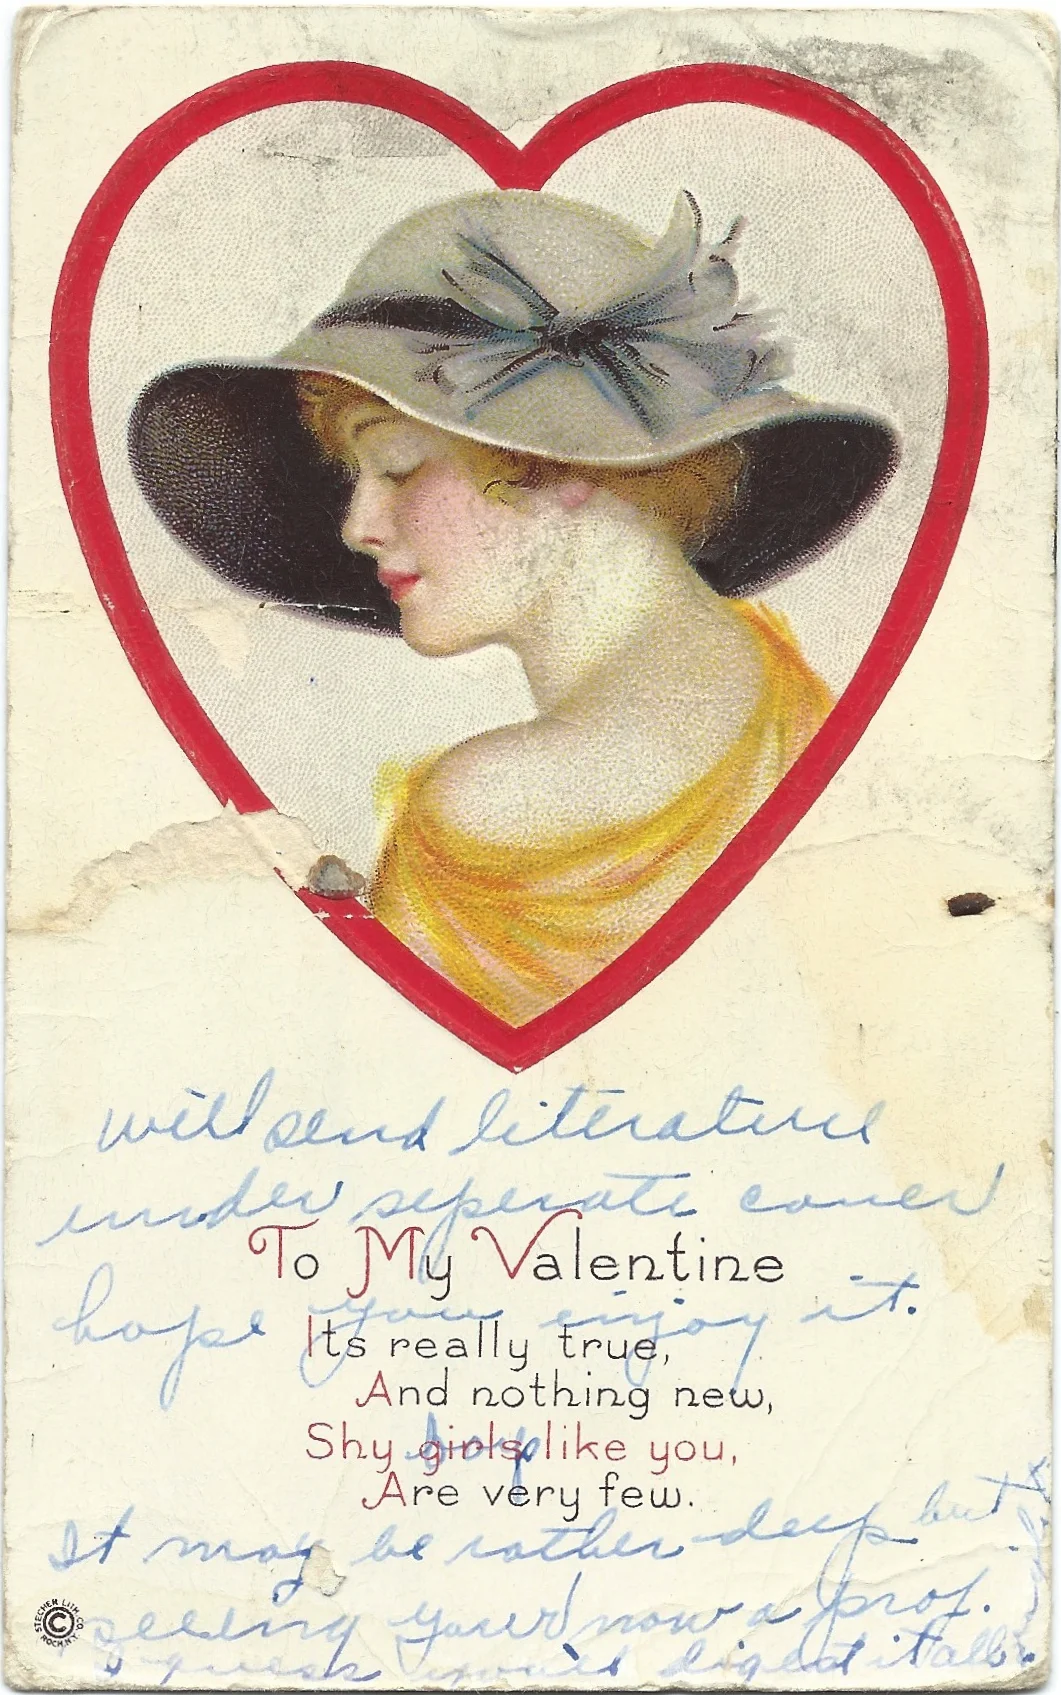 will send literature
under seperate cover
To My Valentine
hope you enjoy it.
Its really true,
And nothing new,
Shy girls like you,
boys
Are very few.
It may be rather deep but
seeing your now a prof.
guess you'll digest it all
STECHER LITH. CO.
ROCH. N.Y.
©